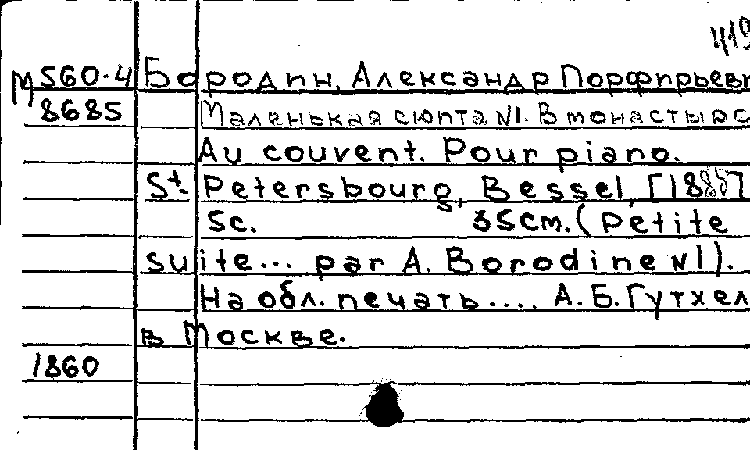 419
М 560-4 Бородин, Александр Порфирьеви
8685 Маленькая сюита №1. В монастыре
Au couvent. Pour piano.
St. Petersbourg, Bessel, [188?]
5c. 35cm. (Petite
suite... par A. Borodine №1).
На обл. печать.... А.Б.Гутхел
в Москве.
1860